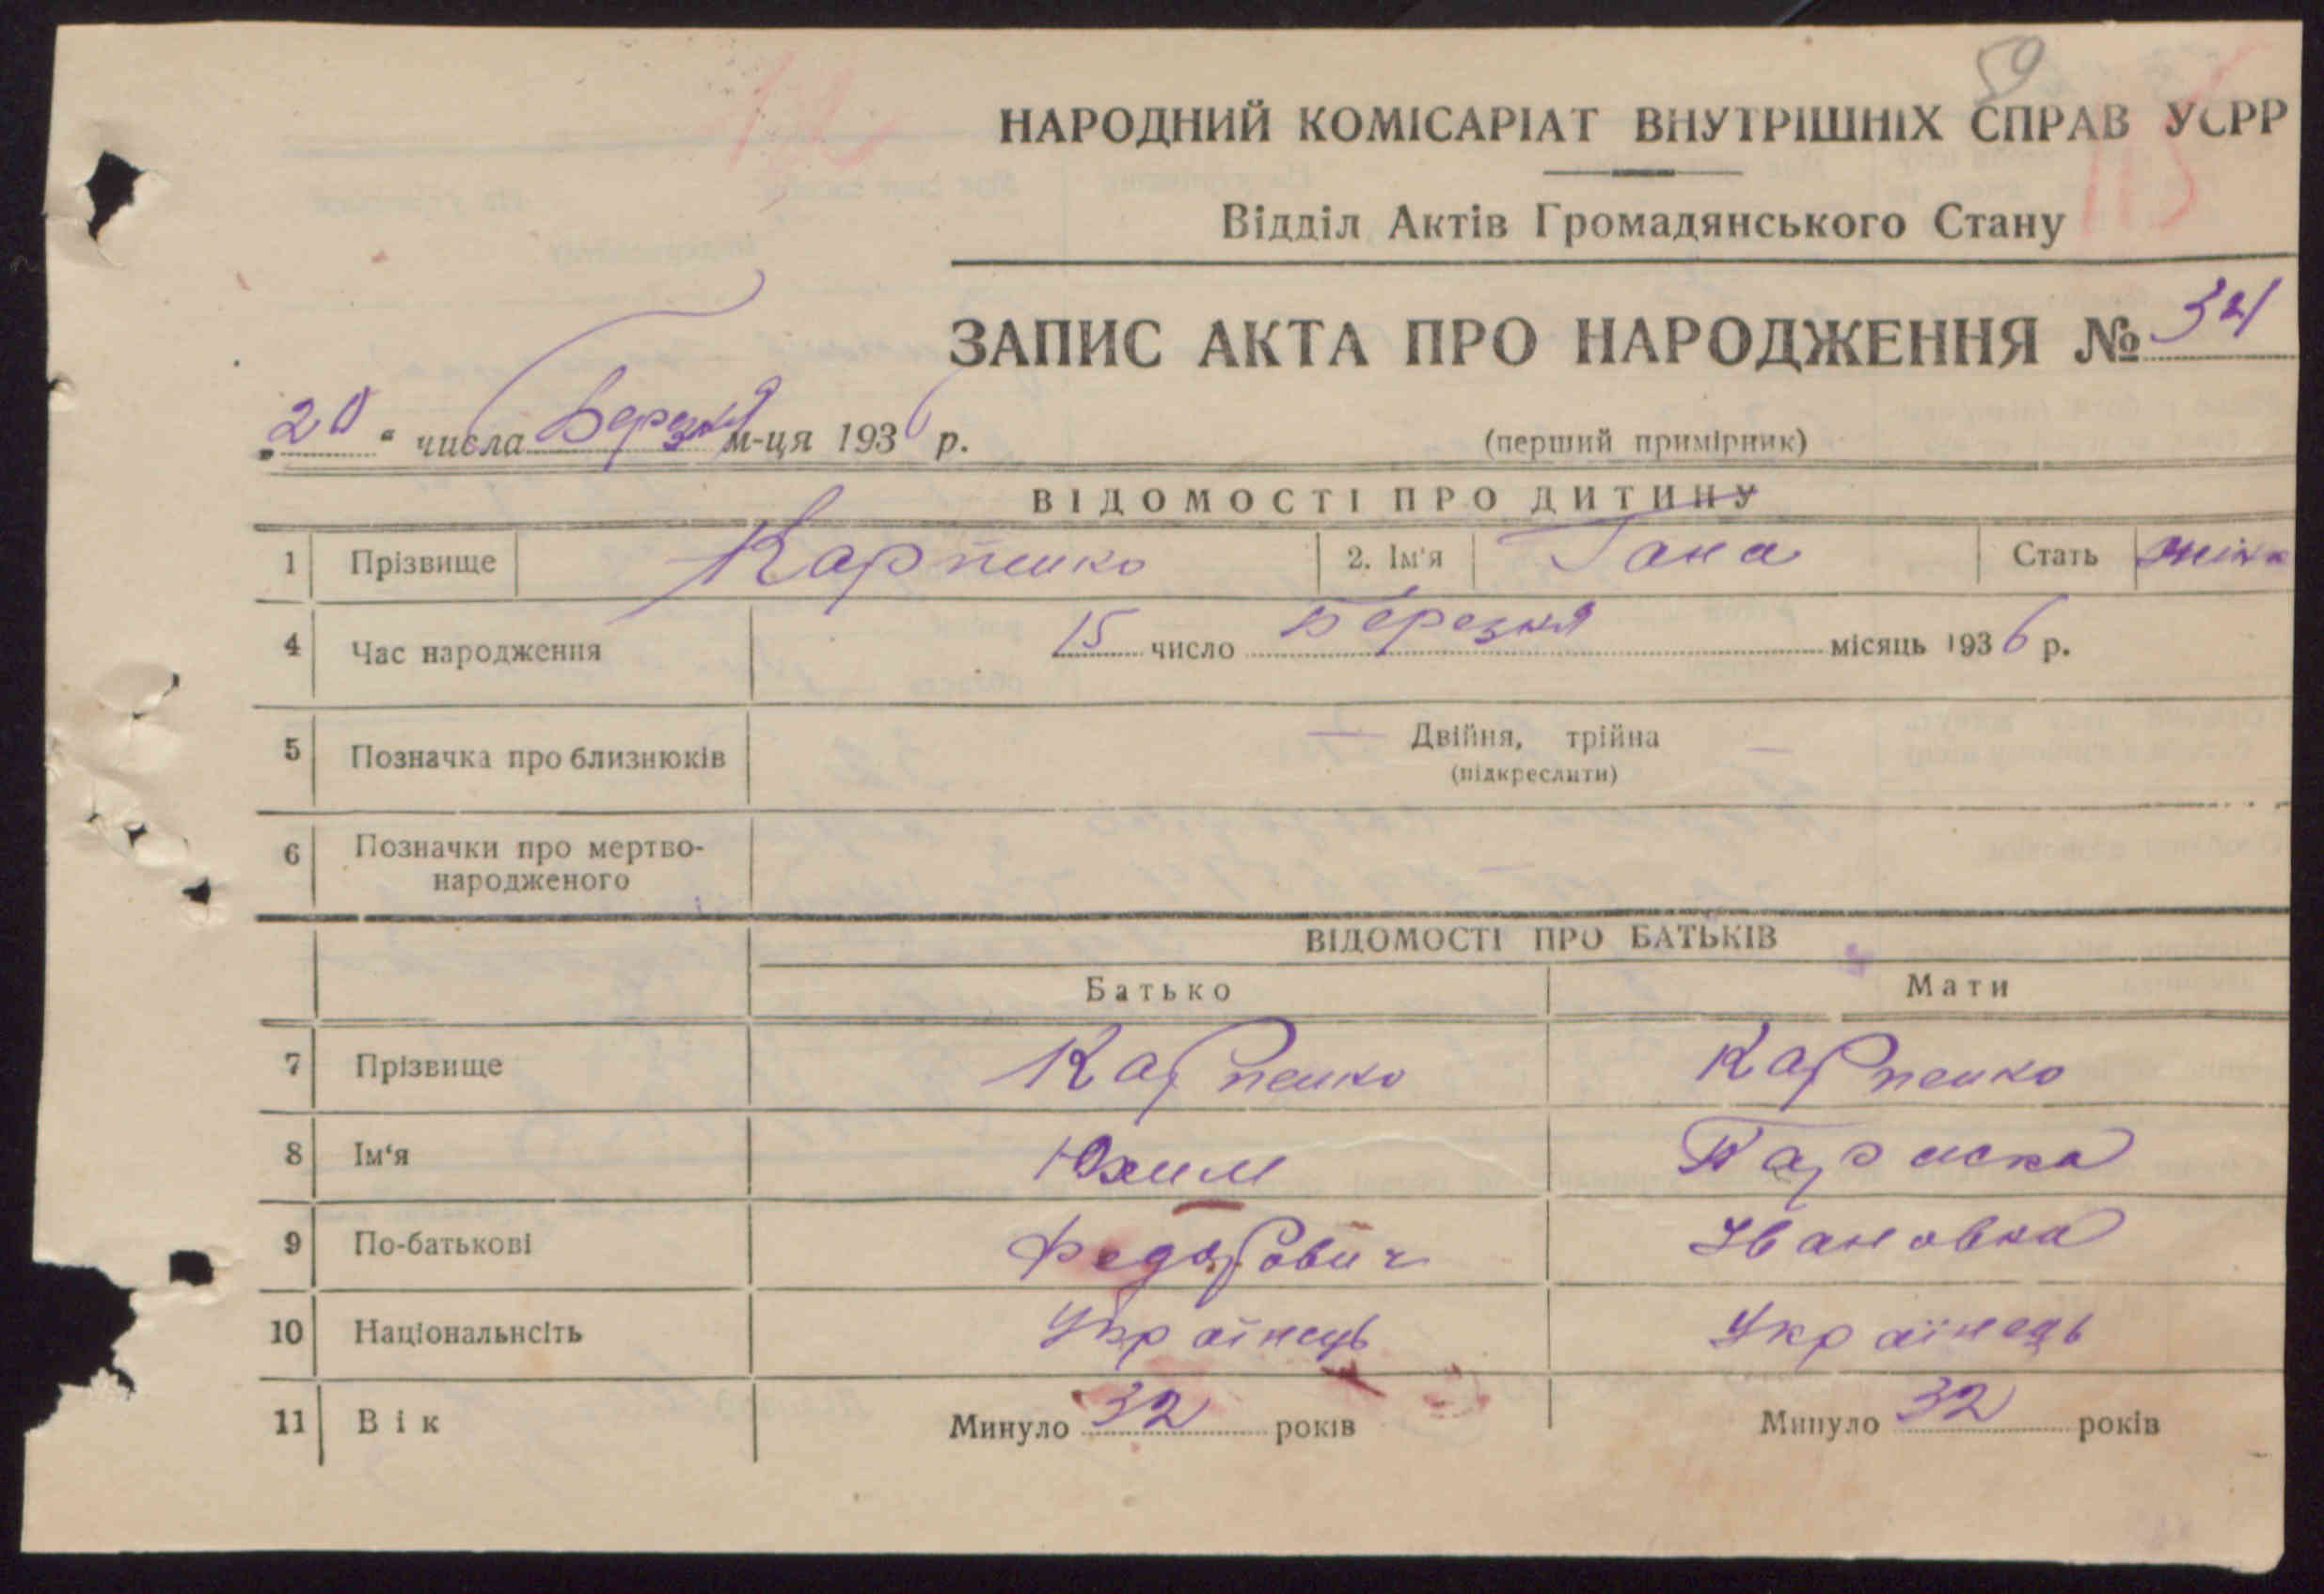 59
НАРОДНИЙ КОМІСАРІАТ ВНУТРІШНІХ СПРАВ УСРР
113
Відділ Актів Громадянського Стану
ЗАПИС АКТА ПРО НАРОДЖЕННЯ № 34
„20“ числа Березня м-ця 1936 р.
(перший примірник)
ВІДОМОСТІ ПРО ДИТИНУ
1 Прізвище Карпенко 2. Ім'я Гана Стать жіно
4 Час народження 15 число Березня місяць 1936 р.
5 Позначка про близнюків — Двійня, трійна —
(підкреслити)
6 Позначки про мертво-
народженого —
ВІДОМОСТІ ПРО БАТЬКІВ
Батько Мати
7 Прізвище Карпенко Карпенко
8 Ім'я Юхим Параска
9 По-батькові Федорович Івановна
10 Національнсіть Українець Українець
11 Вік Минуло 32 років Минуло 32 років